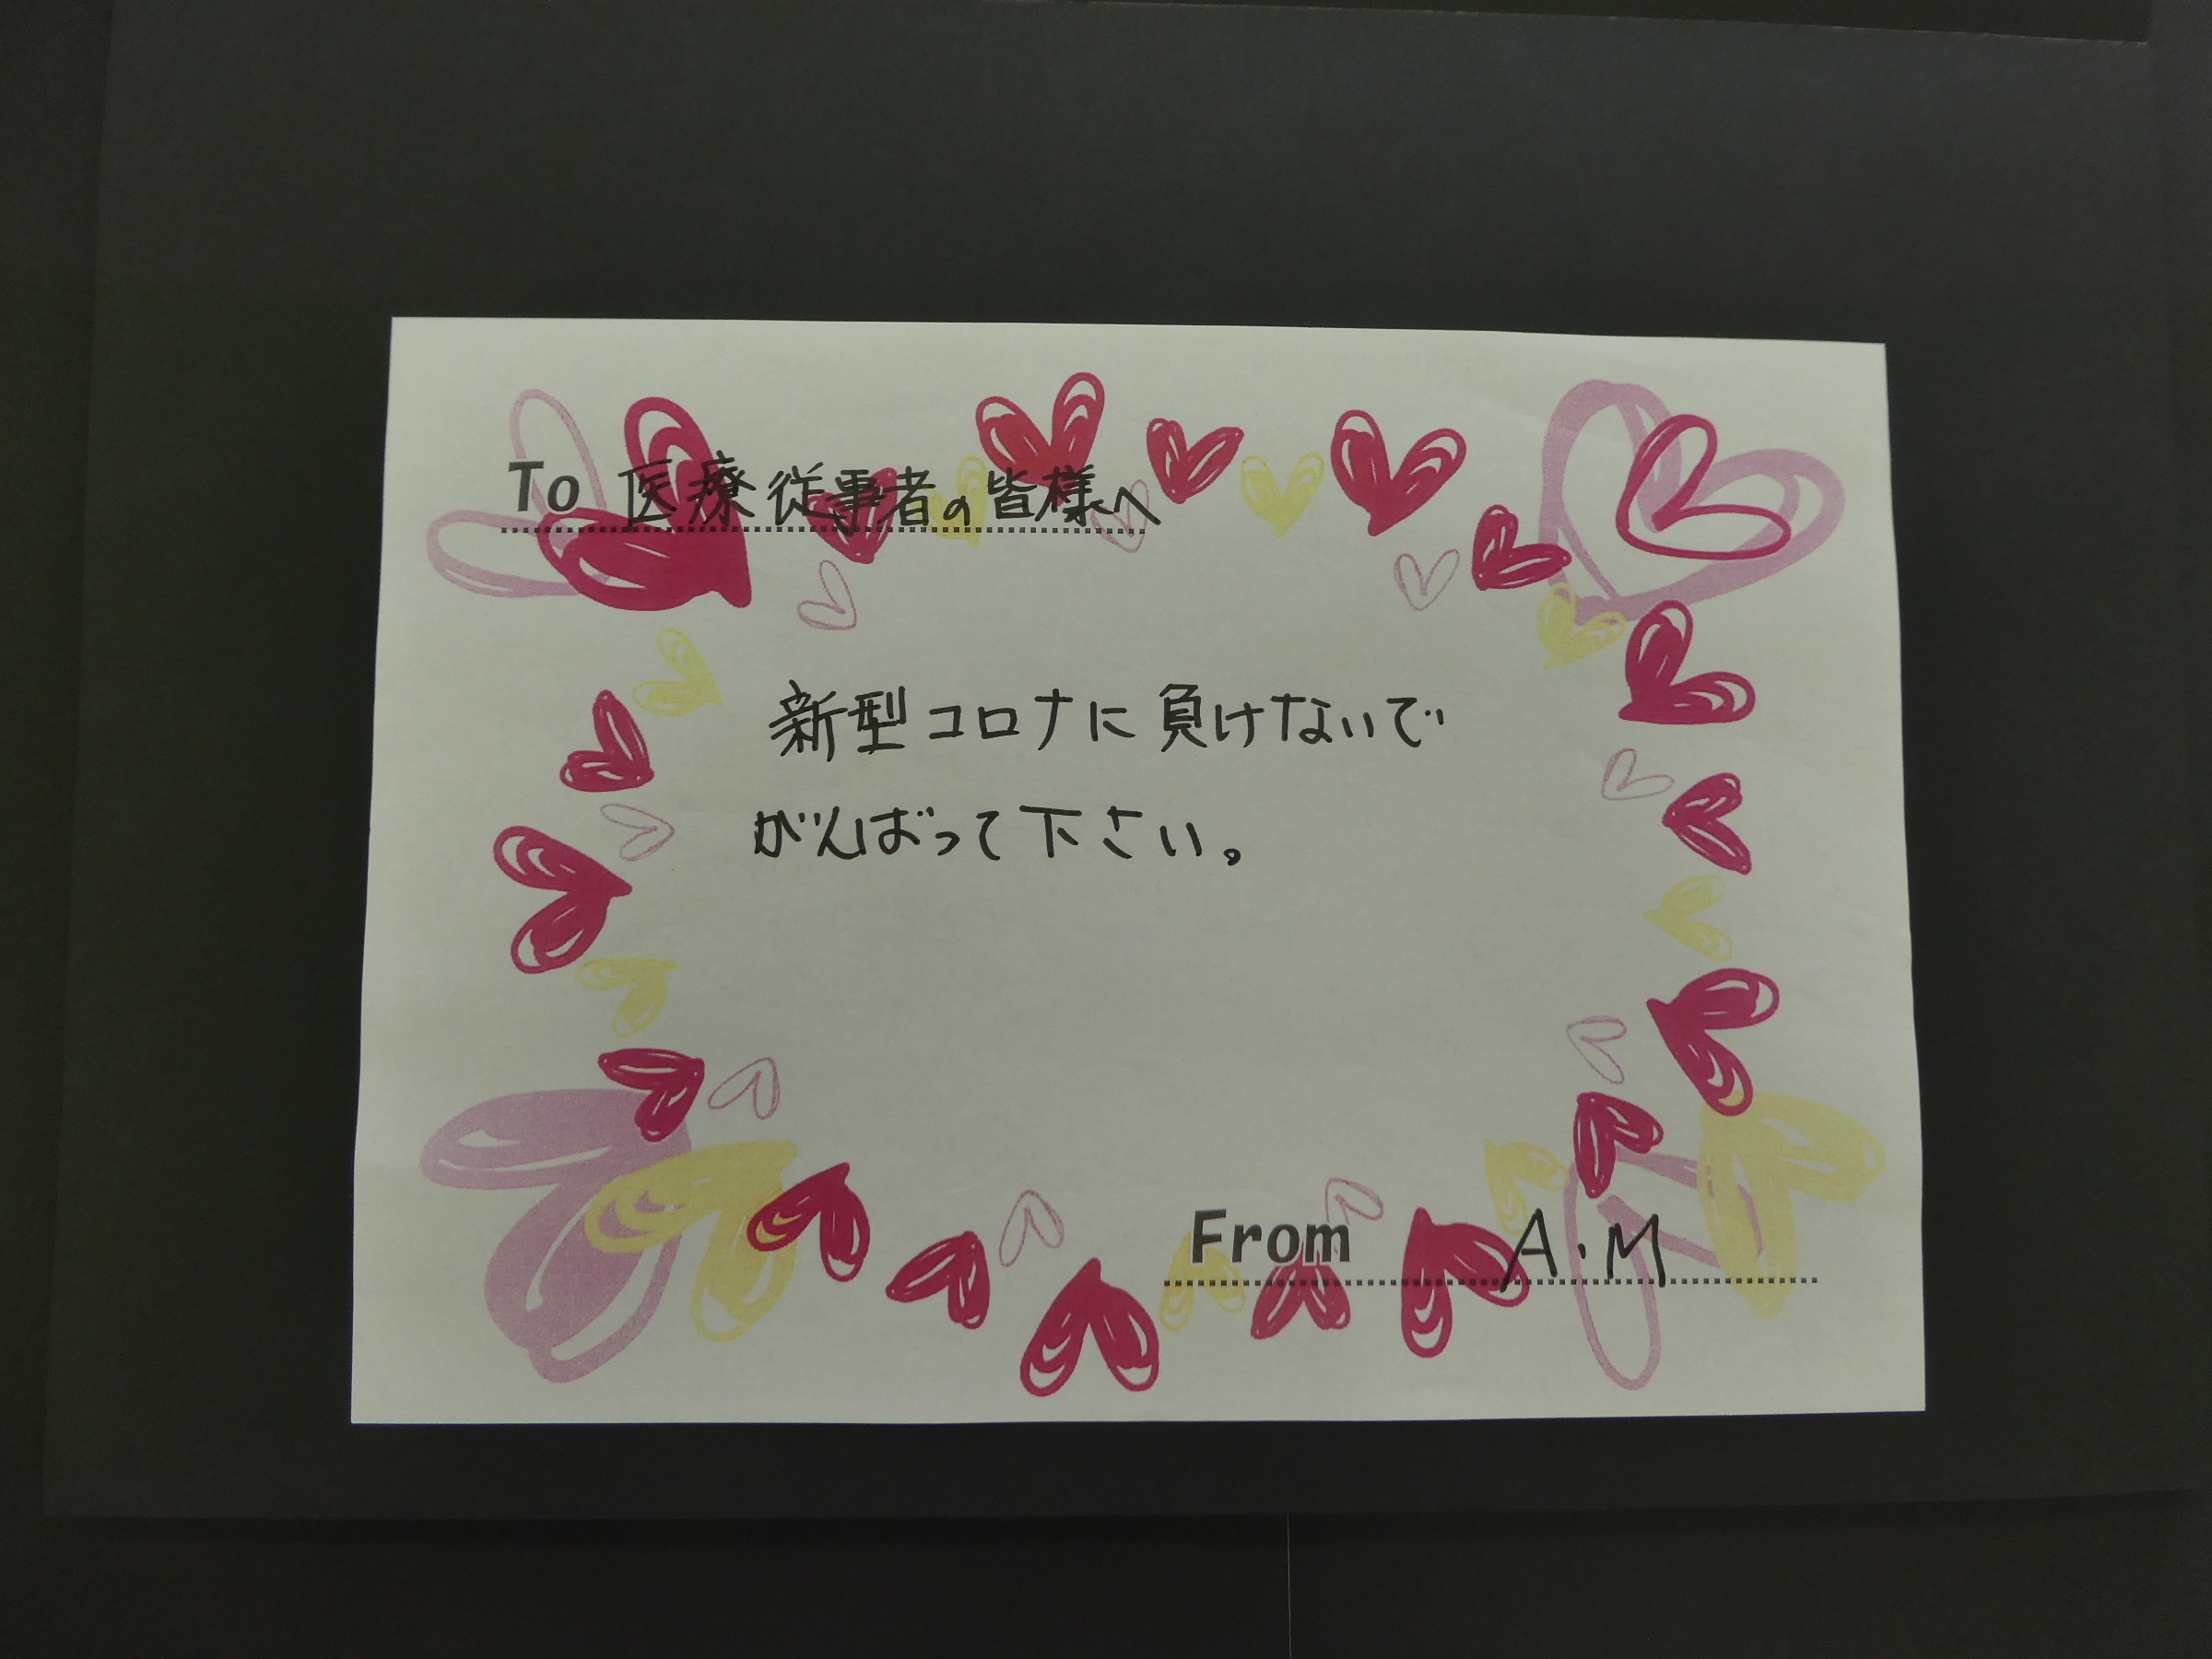 To 医療従事者の皆様へ
新型コロナに負けないで
がんばって下さい。
From A・M